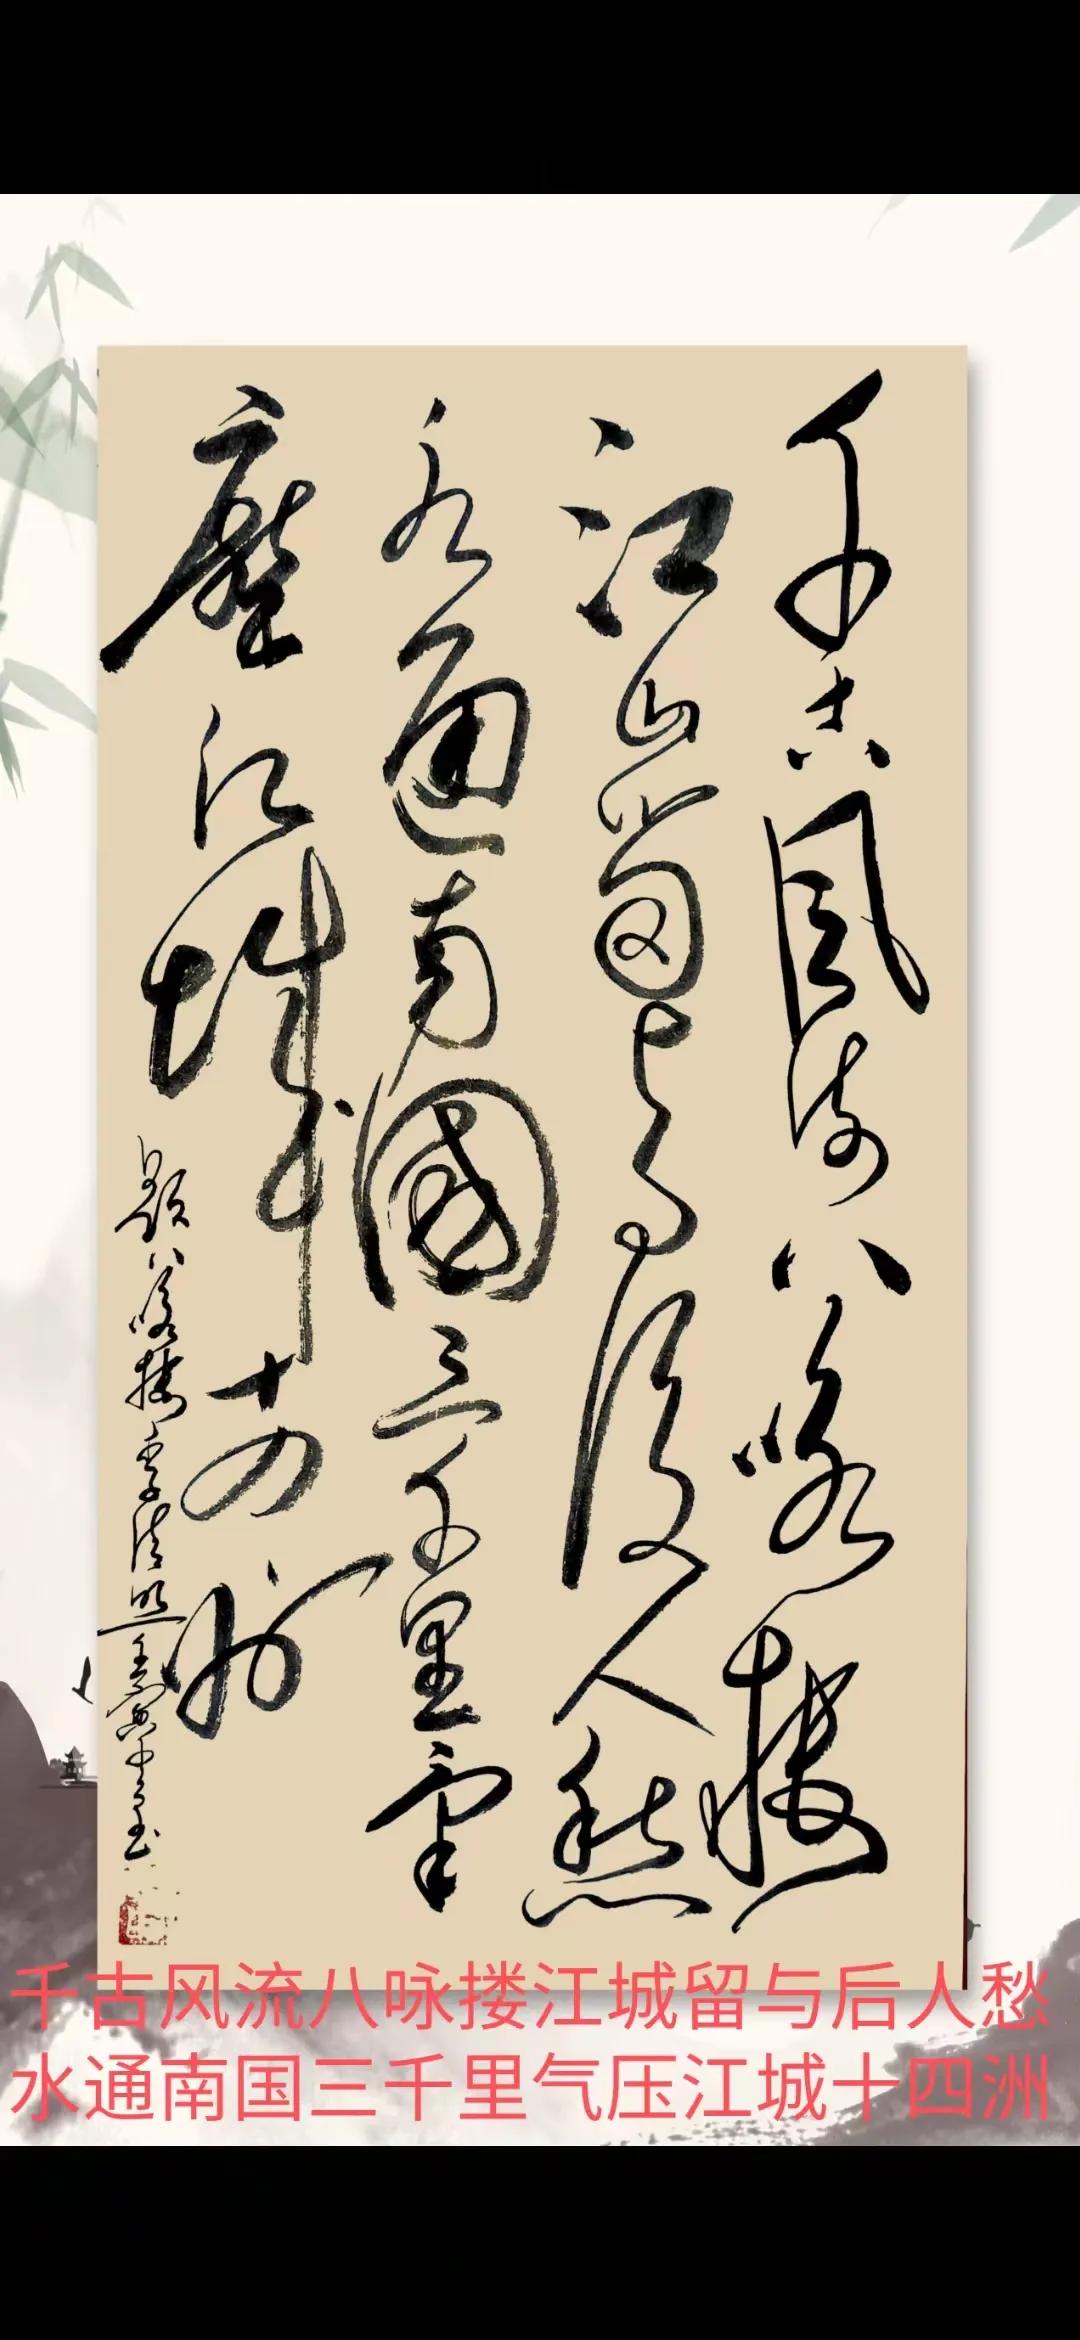 千古風流八咏楼
江山留与後人愁
水通南國三千里氣
壓江城十四州
題八咏楼李清照
千古风流八咏搂江城留与后人愁
水通南国三千里气压江城十四洲